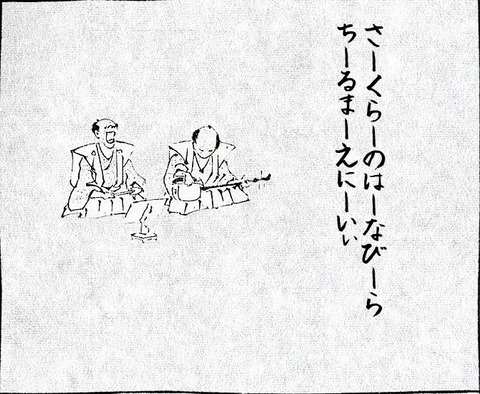 さーくらーのはーなびーら
ちーるまーえにーいぃ